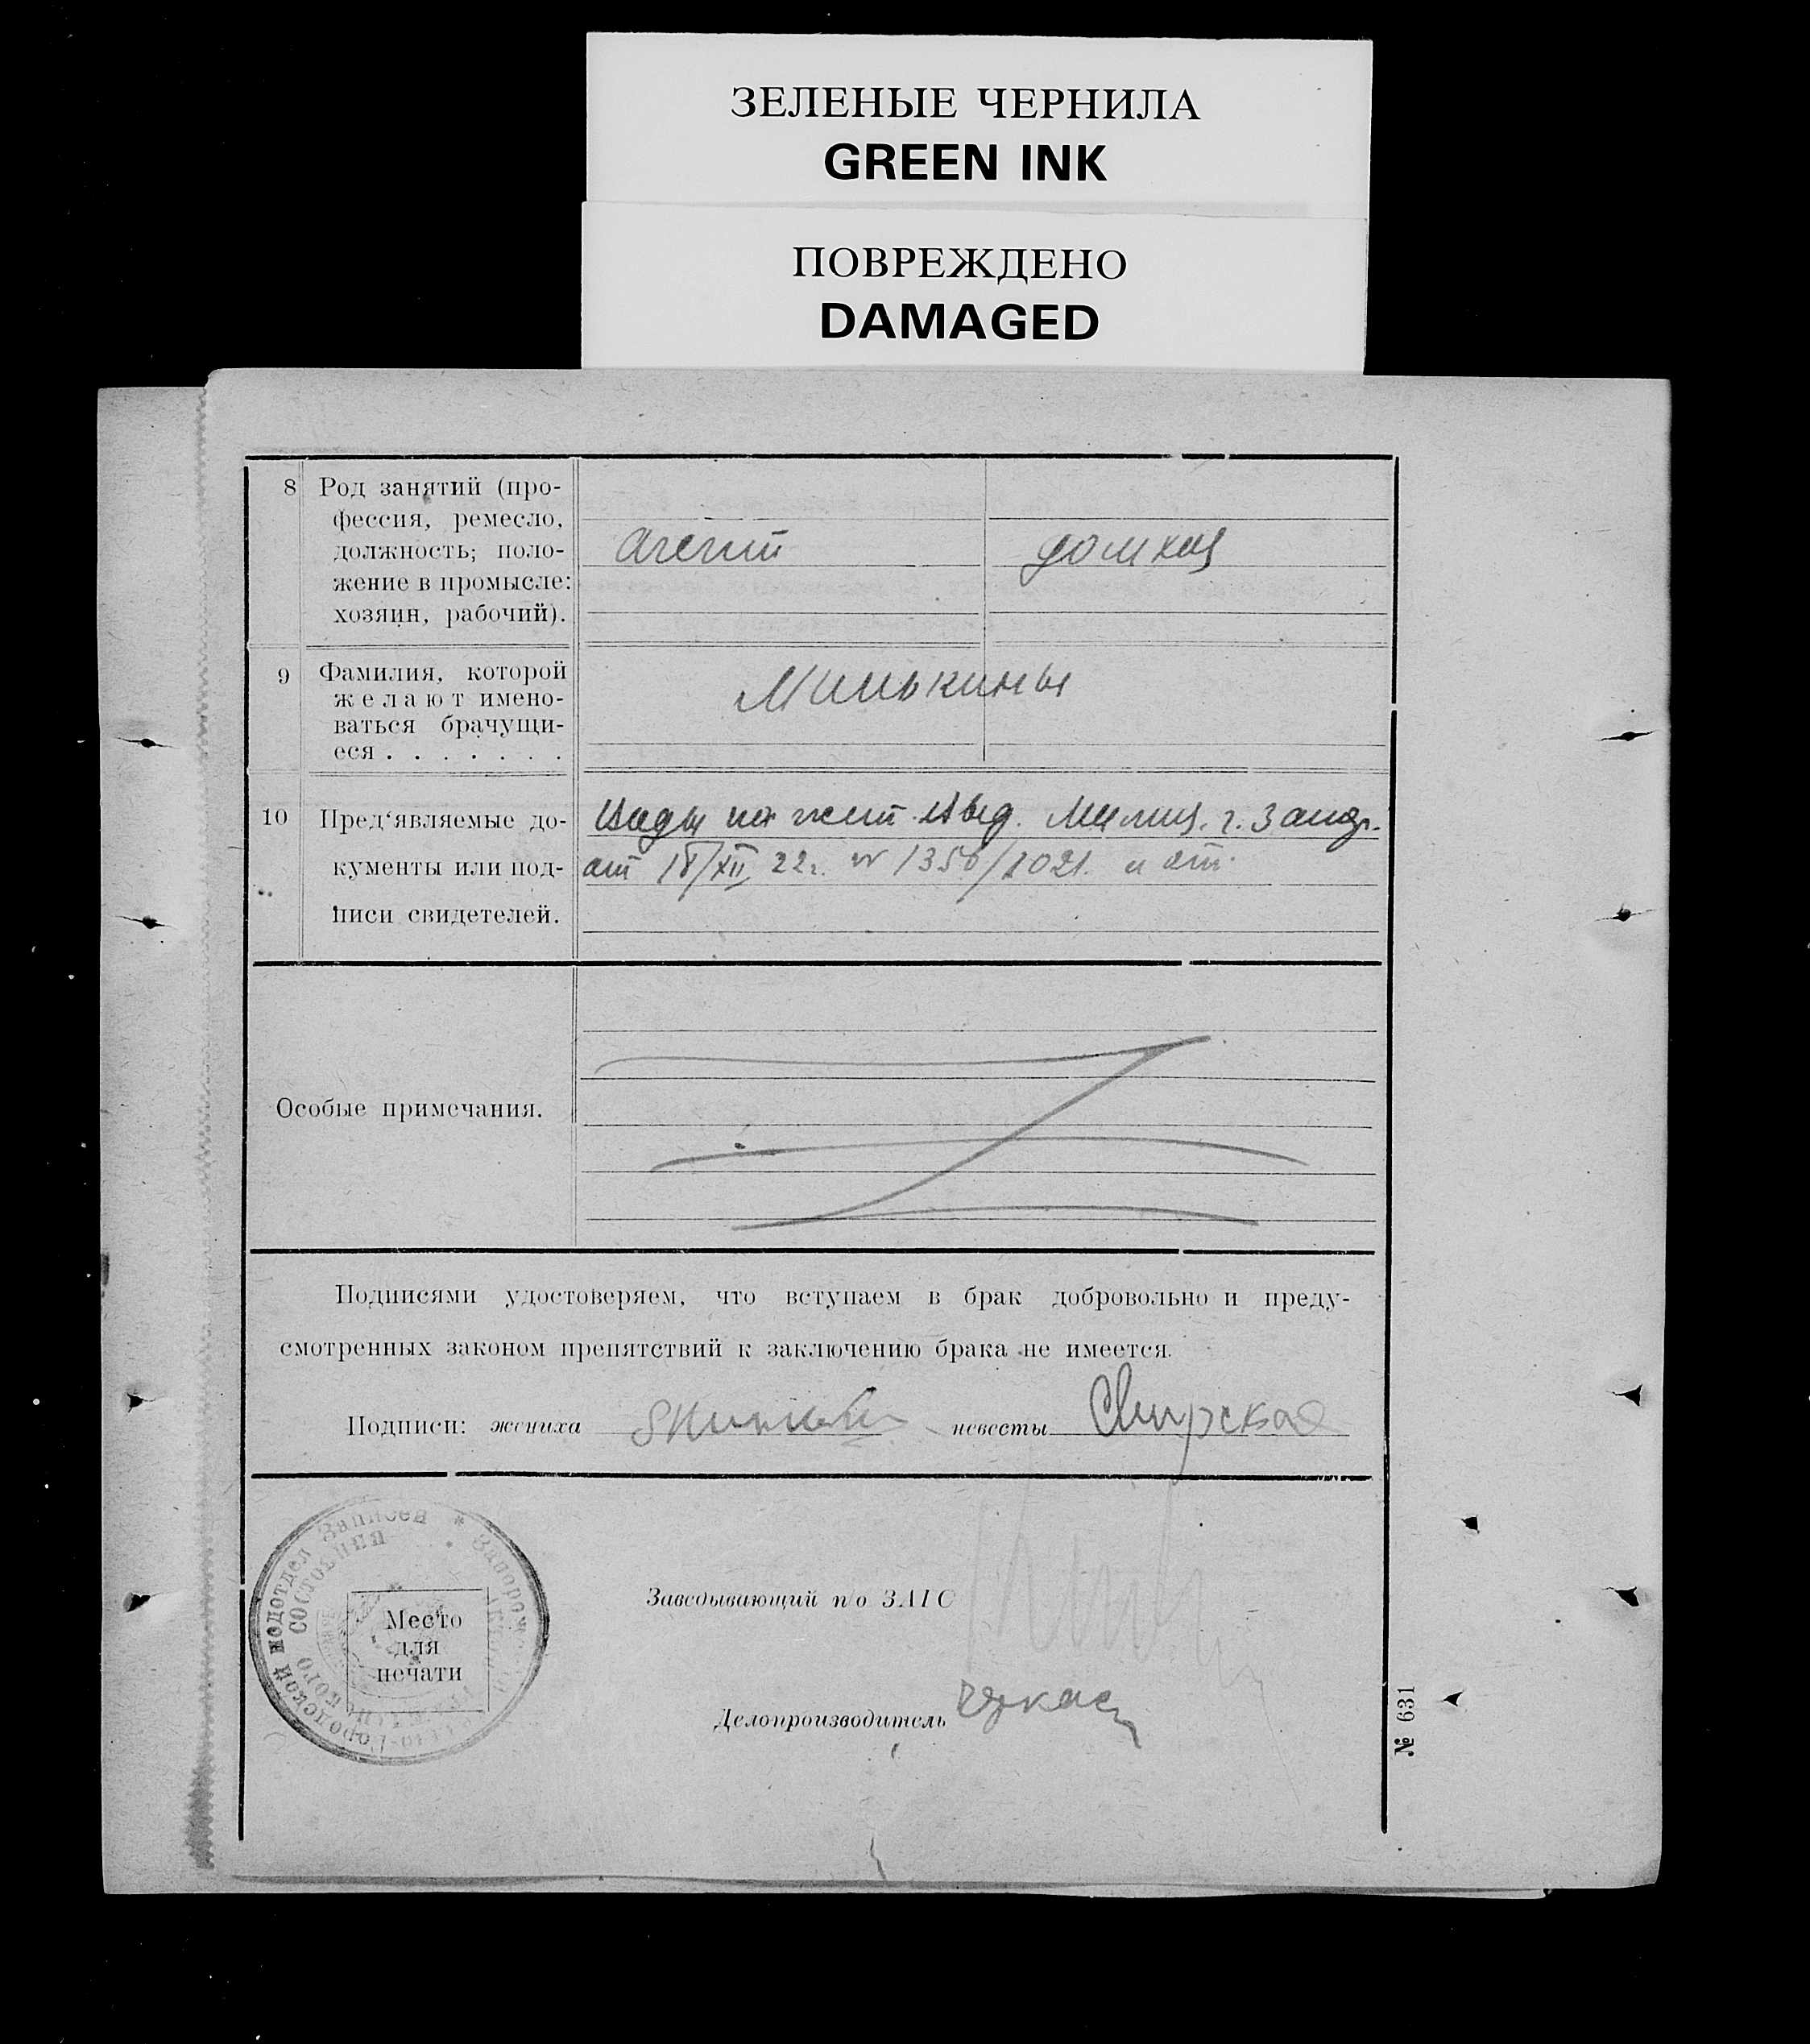 ЗЕЛЕНЫЕ ЧЕРНИЛА
GREEN INK
ПОВРЕЖДЕНО
DAMAGED
8 Род занятий (про-
фессия, ремесло,
должность; поло-
жение в промысле:
хозяин, рабочий).
агент
домхоз
9 Фамилия, которой
желают имено-
ваться брачущи-
еся . . . . . . .
Минькины
10 Пред‘являемые до-
кументы или под-
писи свидетелей.
на жит. Милиц. г. Запор.
от 18/XII 22г. № 1021. и
Особые примечания.
Подписями удостоверяем, что вступаем в брак добровольно и преду-
смотренных законом препятствий к заключению брака не имеется.
Подписи: жениха невесты Свирская
Записей * Запорож
Городской подотдел
состояния
Место
для
печати
Заведывающий п/о ЗАГС
Делопроизводитель
№ 631